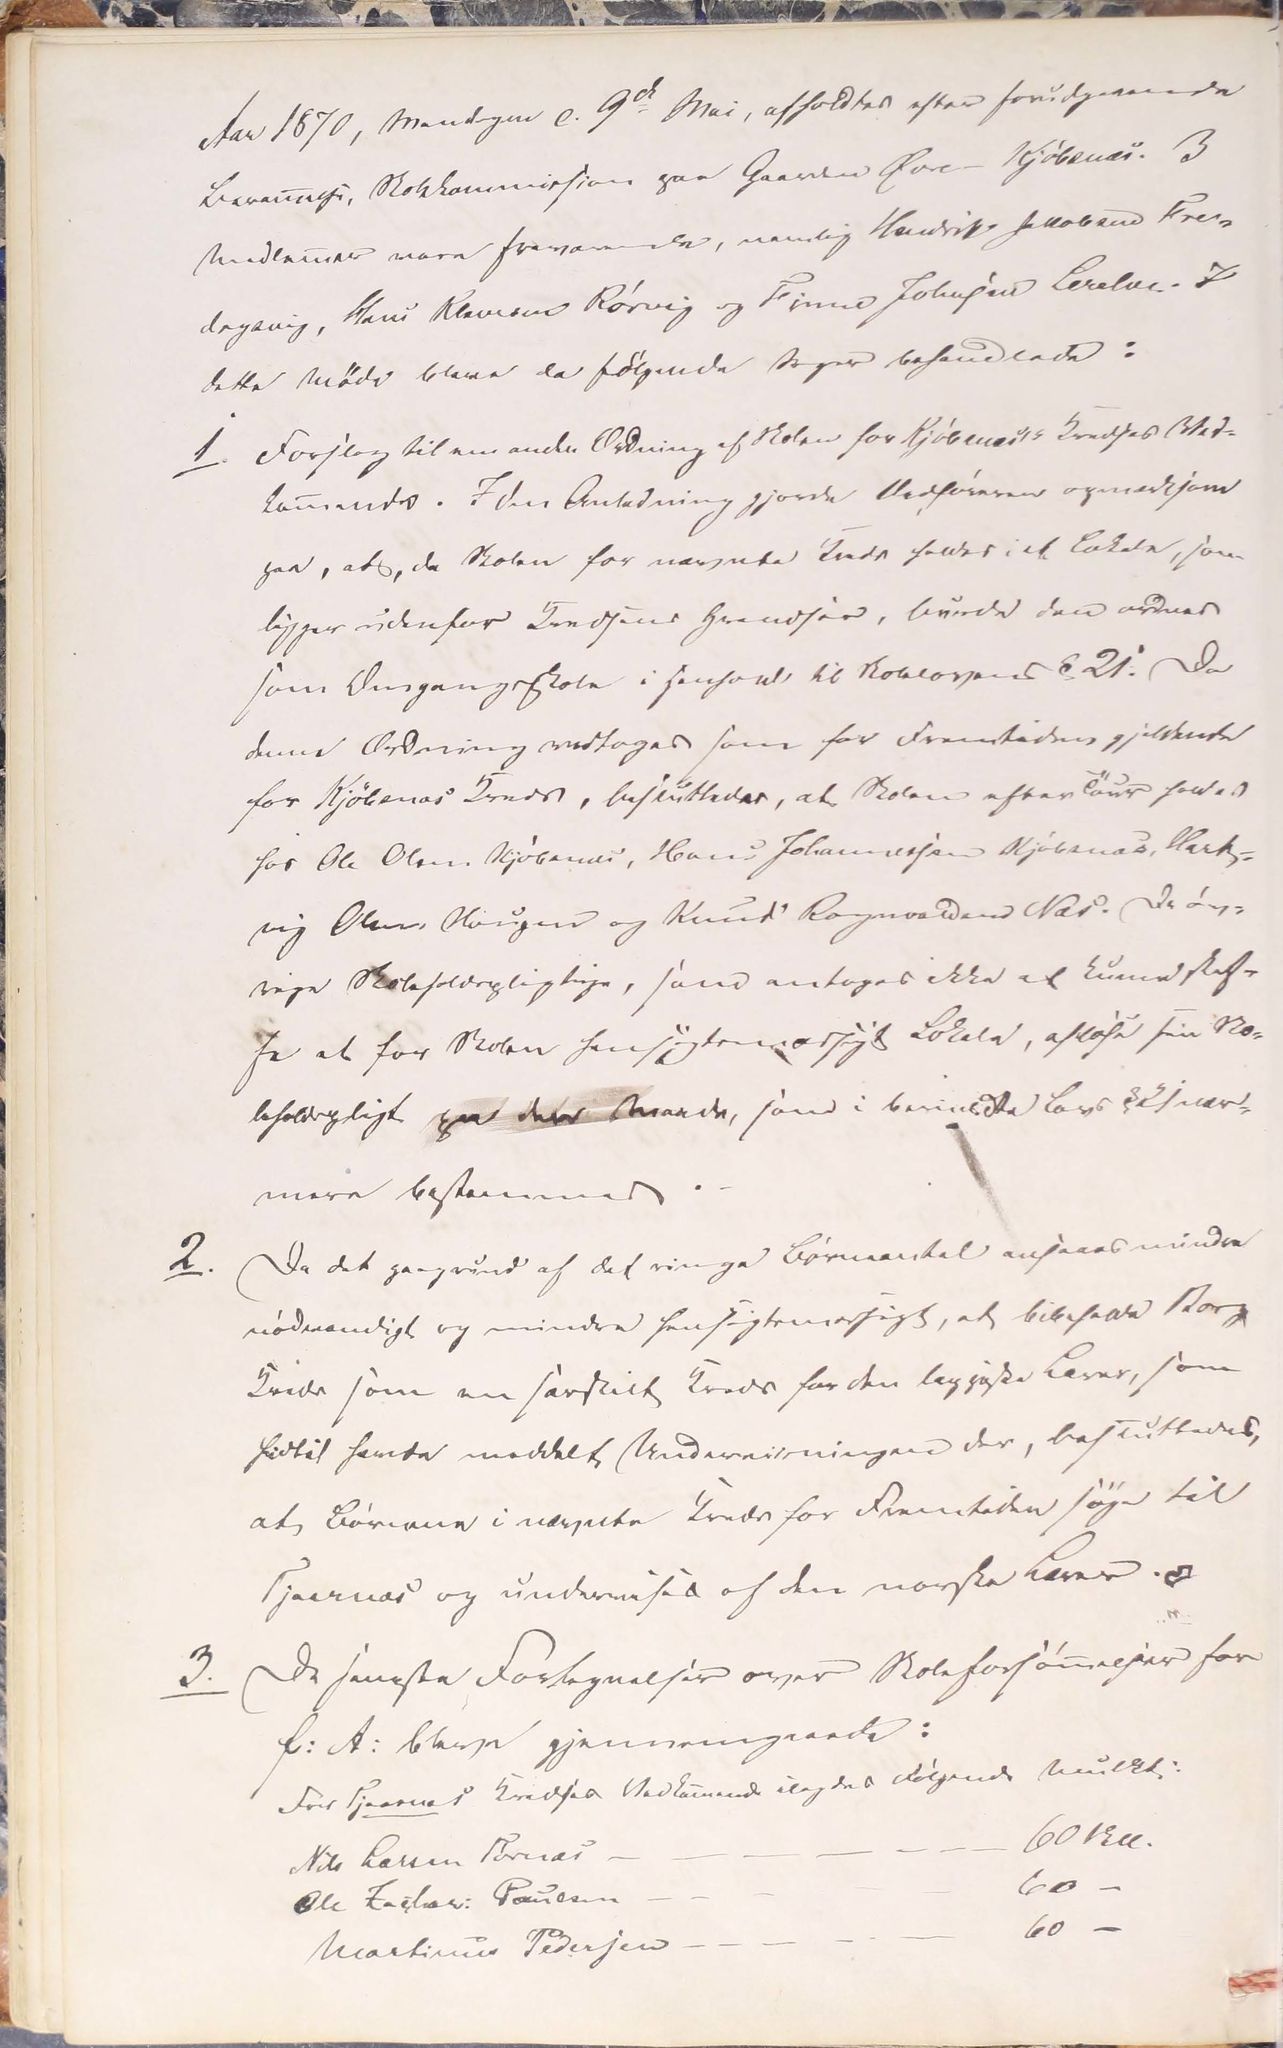 Aar 1870, Mandagen d. 9de Mai, afholdtes efter forudgaaende
Beramelse, Skolekommission paa Gaarden Øvre-Kjöbsnæs. 3
Medlemmer vare fraværende, nemlig Hendrik Jakobsen Fre-
dagsvig, Hans Klausen Rörvig og Finne Johnsen Lerelve. I
dette Möde bleve da fölgende Sager behandlede:
1. Forslag til en anden Ordning af Skolen for Kjöbsnæs's Kredses Ved-
kommende. I den Anledning gjorde Ordföreren opmærksom
paa, at, da Skolen for nævnte Kreds holdes i et Lokale, som
ligger udenfor Kredsens Grændser, burde den ordnes
som Omgangsskole i Henhold til Skolelovens § 21. Da
denne Ordning vedtoges som for Fremtiden gjeldende
for Kjöbsnæs Kreds, besluttedes, at Skolen efter Tour holdes
hos Ole Olsen Kjöbsnæs, Hans Johannesen Kjöbsnæs, Hart-
vig Olsen Haugen og Knud Ragnvaldsen Næs. De öv-
rige Skoleholdspligtige, som antoges ikke at kunne skaf-
fe et for Skolen hensigtsmæssigt Lokale, aflöse sin Sko-
leholdspligt paa den Maade, som i berörte Lovs § 21 nær-
mere bestemmes.
2. Da det paagrund af det ringe Börneantal ansaaes mindre
nödvendigt og mindre hensigtsmæssigt, at bibeholde Borg
Kreds som en særskilt Kreds for den lappiske Lærer, som
hidtil havde meddelt Undervisningen der, besluttedes,
at Börnene i nævnte Kreds for Fremtiden söge til
Tjærnæs og undervises af den norske Lærer.
3. De seneste Fortegnelser over Skoleforsömmelser for
f: A: bleve gjennemgaaede:
For Tjærnæs Kredses Vedkommende ilagdes Fölgende Mulkt:
Nils Larsen Fornæs - - - - - - - 60 Skill.
Ole Zachar: Paulsen - - - 60 -
Martinus Pedersen - - - - - - 60 -